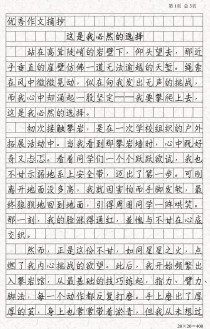 第1页 总3页
优秀作文摘抄
这是我必然的选择
站在高耸陡峭的岩壁下,仰头望去,那近
乎垂直的崖壁仿佛一道无法逾越的天堑。绳索
在风中微微晃动,似在向我发出无声的挑战,
而我心中却涌起一股坚定——我要攀爬上去。
这是我必然的选择。
初次接触攀岩,是在一次学校组织的户外
拓展活动中。当我看到那攀岩墙时,心中既好
奇又忐忑。看着同学们一个个跃跃欲试,我也
不甘示弱地系上安全带,迈出了第一步。可刚
离开地面没多高,我就因害怕而手脚发软,最
终狼狈地回到地面,引得周围同学一阵哄笑。
那一刻,我的脸涨得通红,羞愧与不甘在心底
交织。
然而,正是这份不甘,如同星星之火,点
燃了我内心挑战的欲望。此后,我开始频繁出
入攀岩馆,从最基础的技巧练起,指力、臂力、
脚法,每一个动作都反复打磨。手上磨出了厚
厚的茧,身上也常常带着淤青,但我从未想过
20×20=400